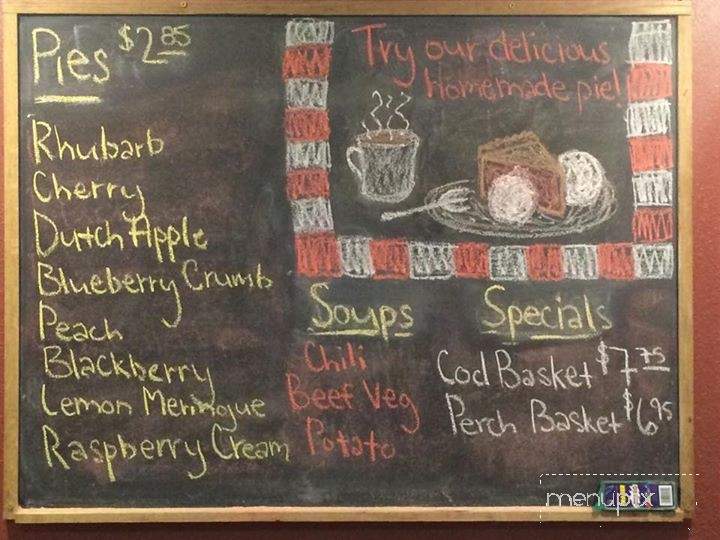 Pies $2.85
Rhubarb
Cherry
Dutch Apple
Blueberry Crumb
Peach
Blackberry
Lemon Meringue
Raspberry Cream
Try our delicious
homemade pie!
Soups
Chili
Beef Veg
Potato
Specials
Cod Basket $7.75
Perch Basket $6.95
menupix